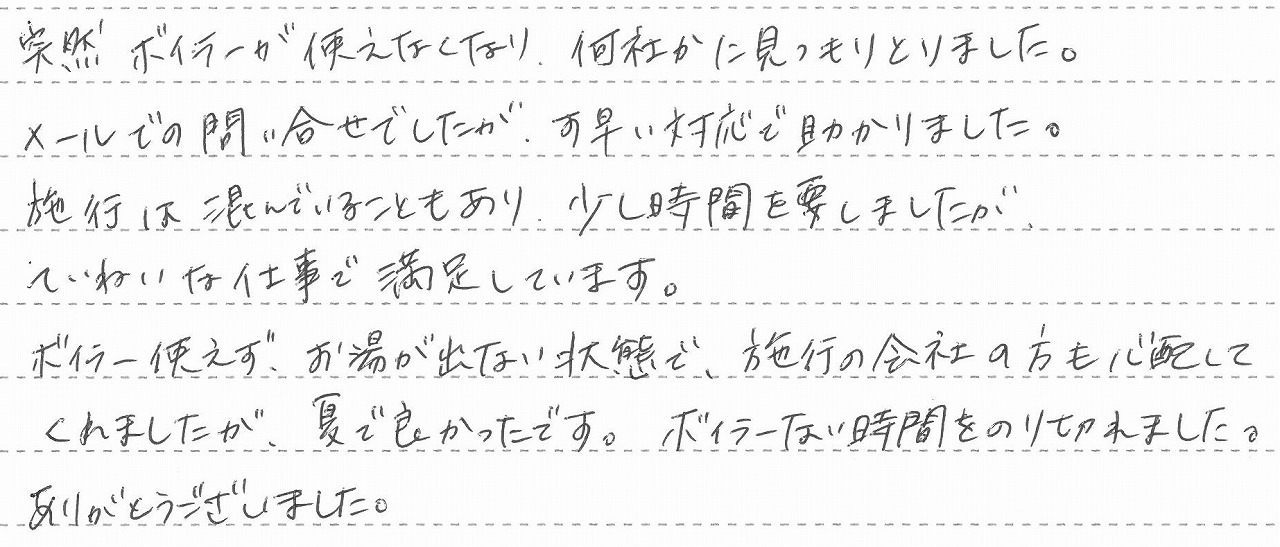 突然ボイラーが使えなくなり、何社かに見つもりとりました。
メールでの問い合せでしたが、す早い対応で助かりました。
施行は混んでいることもあり、少し時間を要しましたが、
ていねいな仕事で満足しています。
ボイラー使えず、お湯が出ない状態で、施行の会社の方も心配して
くれましたが、夏で良かったです。ボイラーない時間をのり切れました。
ありがとうございました。